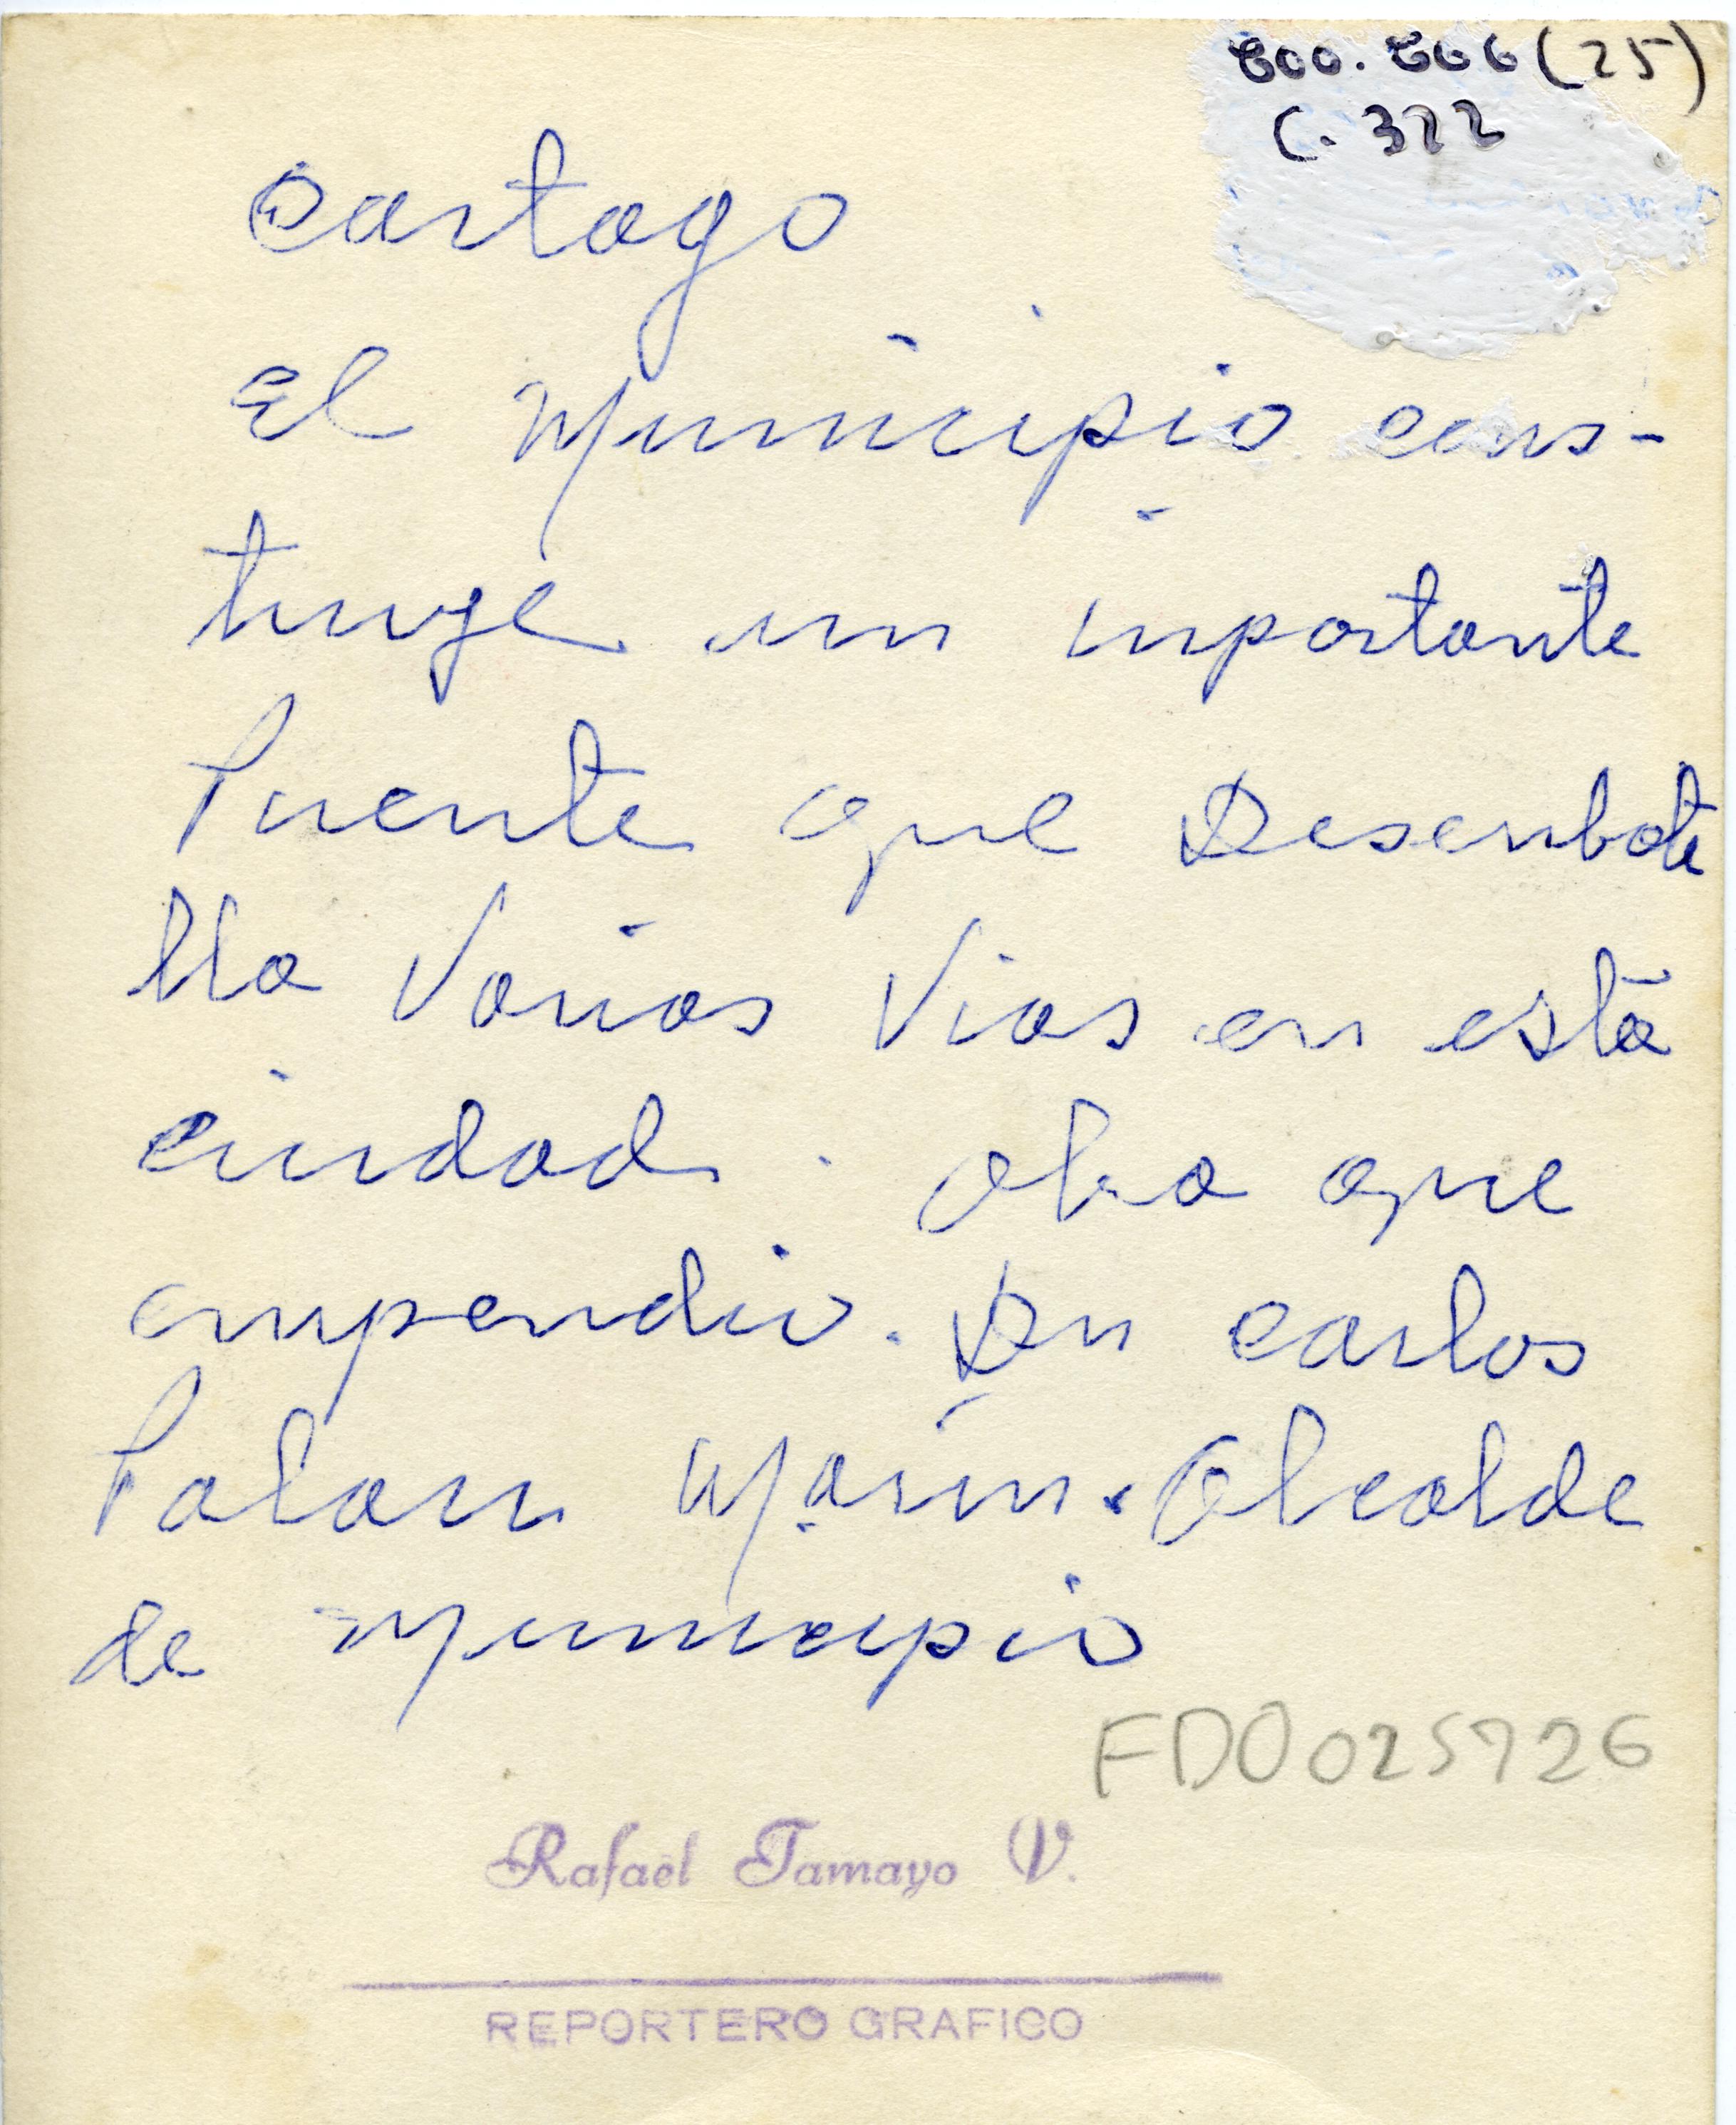 800.866 (25)
C. 322
Cartago
El Municipio cons-
truye un inportante
Puente que Desenbote
lla Varias Vias en esta
ciudad. Obra que
enpendio. Dn Carlos
Palau Marin. Alcalde
de Municipio
FDO025726
Rafael Tamayo V.
REPORTERO GRAFICO